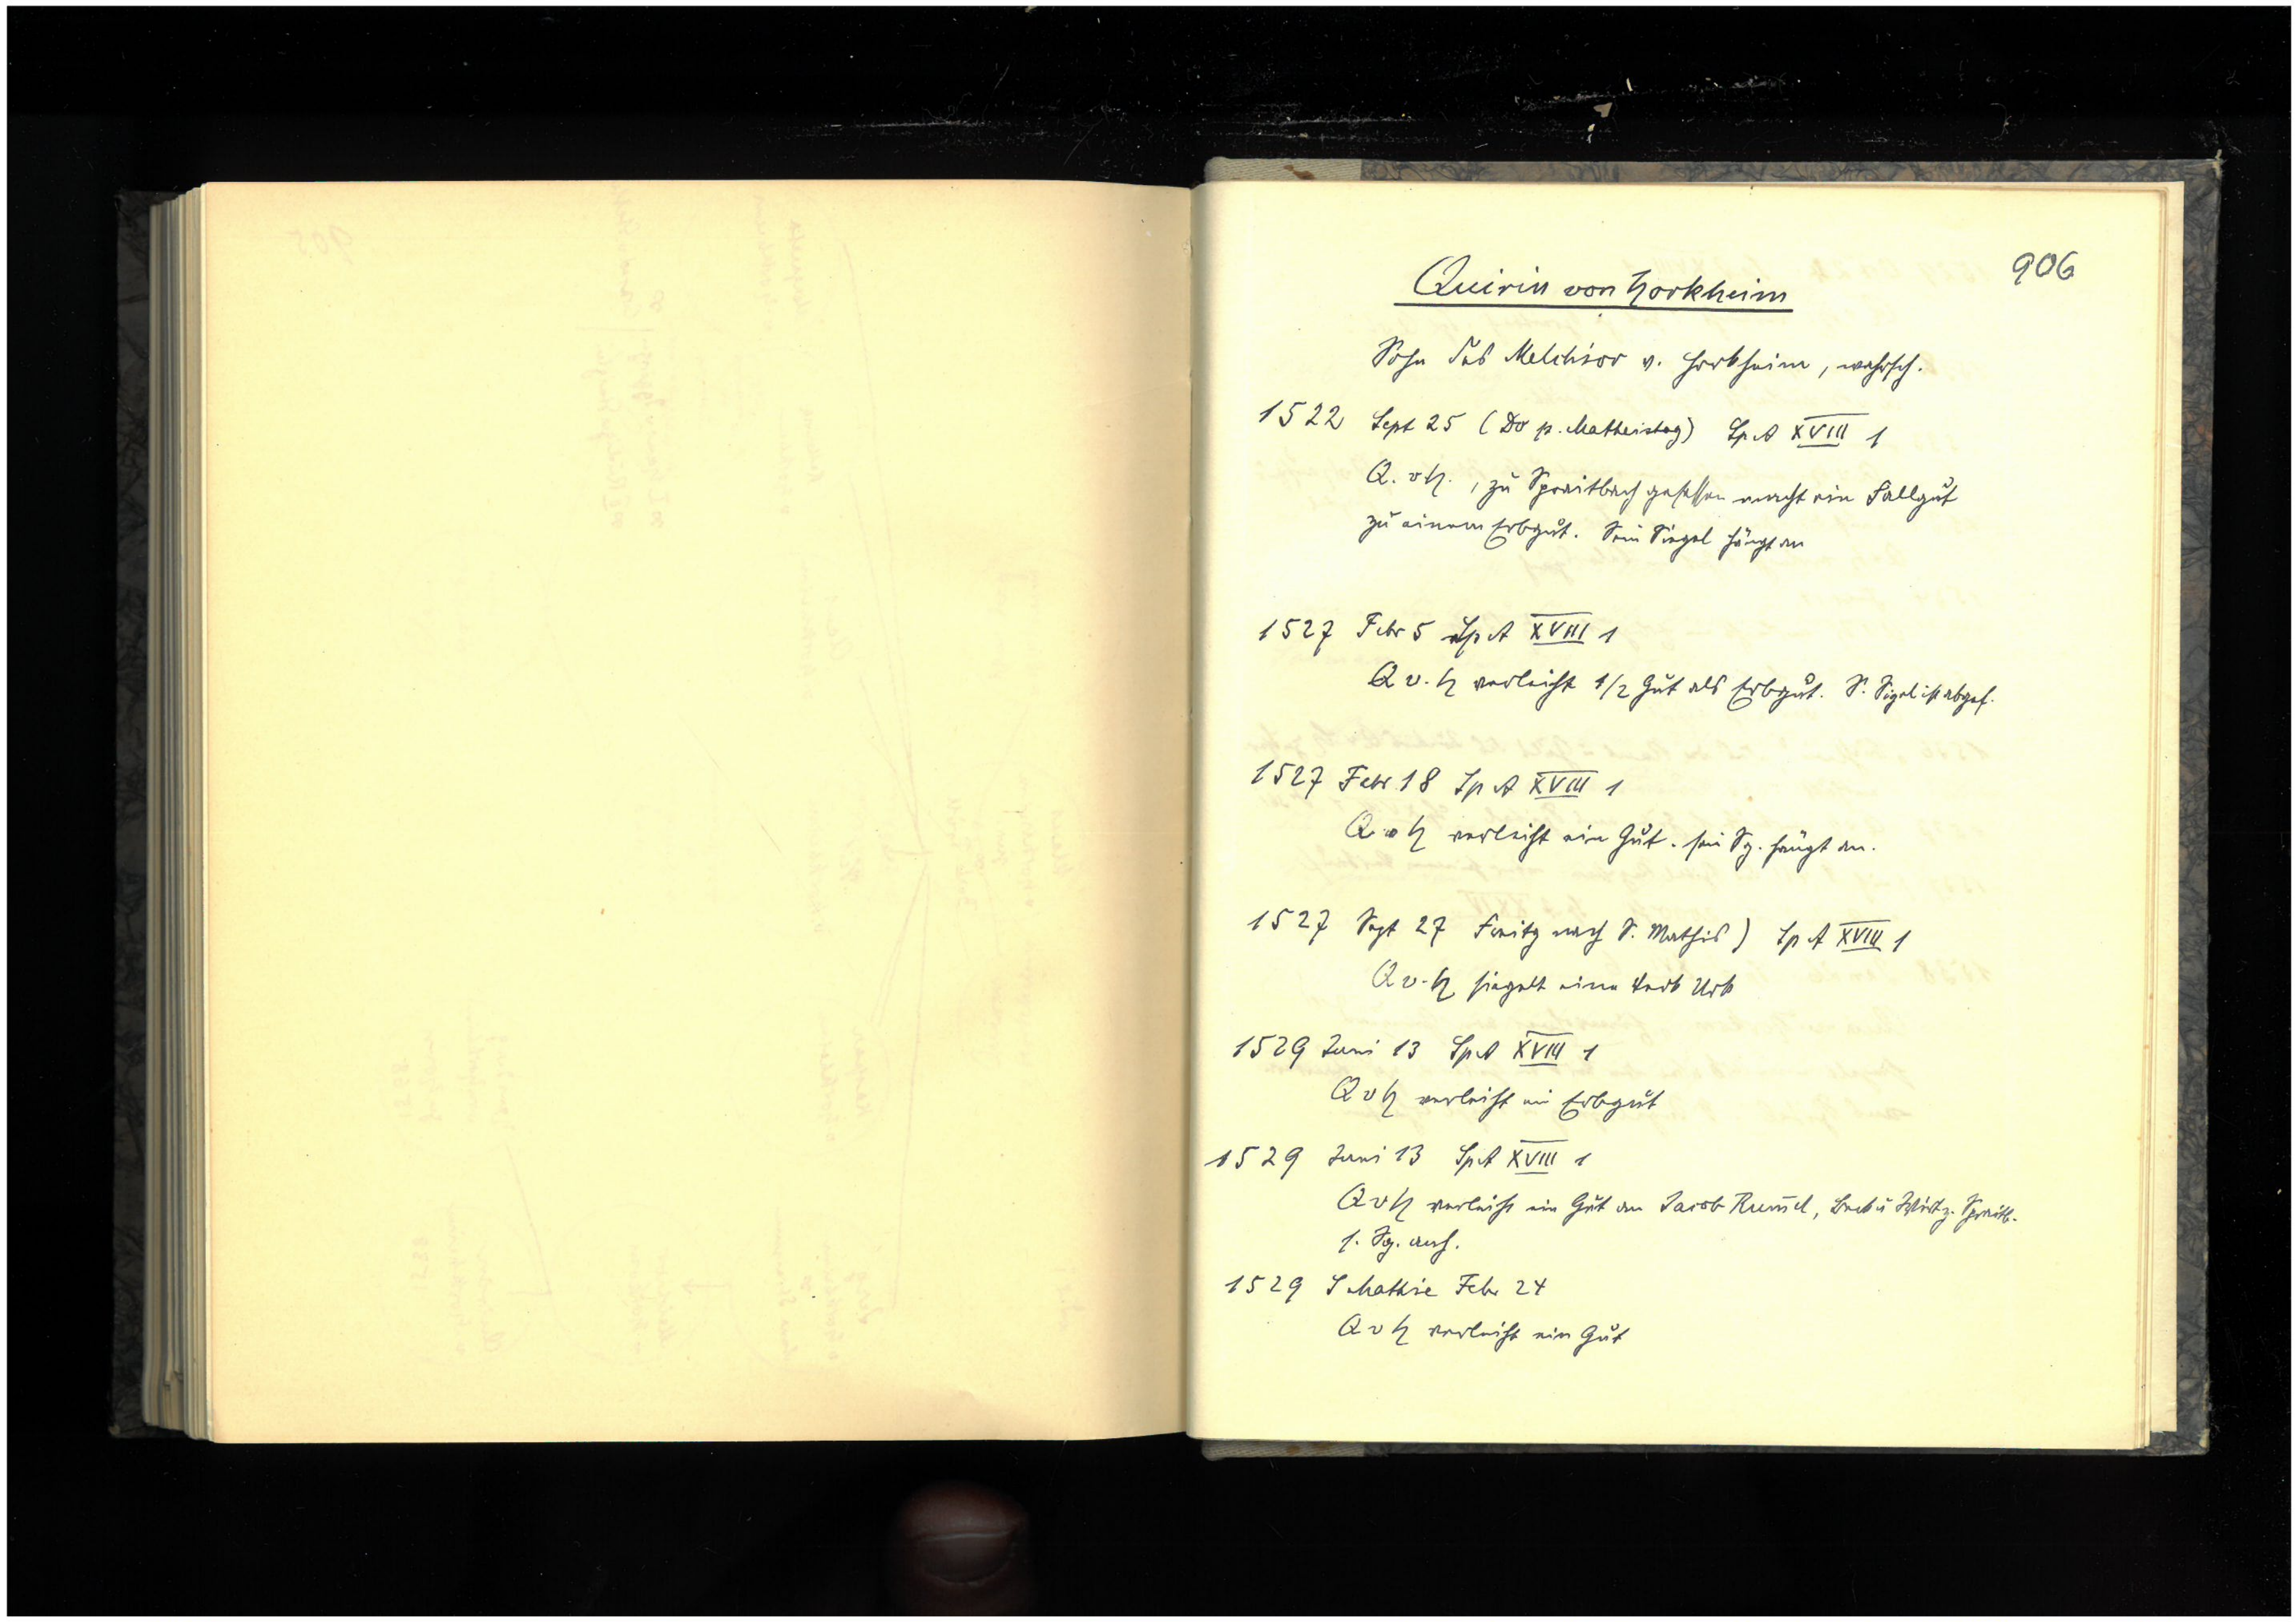 906
Quirin von Horkheim
Sohn des Melchior v. Horkheim, wahrsch.
1522 Sept 25 (Do p. Matheistag) Sp A XVIII 1
Q. v H., zu Spraitbach gesessen macht ein Fallgut
zu einem Erbgut. Sein Siegel hängt an
1527 Febr 5 Sp A XVIII 1
Q v. H verleiht 1/2 Gut als Erbgut. S. Sigel ist abgef.
1527 Febr. 18 Sp A XVIII 1
Q v H verleiht ein Gut. sein Sg. hängt an.
1527 Sept 27 Freitg nach S. Mathis) Sp A XVIII 1
Q v. H siegelt eine Urk
1529 Juni 13 Sp A XVIII 1
Q v H verleiht ein Erbgut
1529 Juni 13 Sp A XVIII 1
Q v H verleiht ein Gut an Jacob Rum̄el, Beck u Wirt z. Spraitb.
s. Sg. anh.
1529 S Mathie Febr 24
Q v H verleiht ein Gut